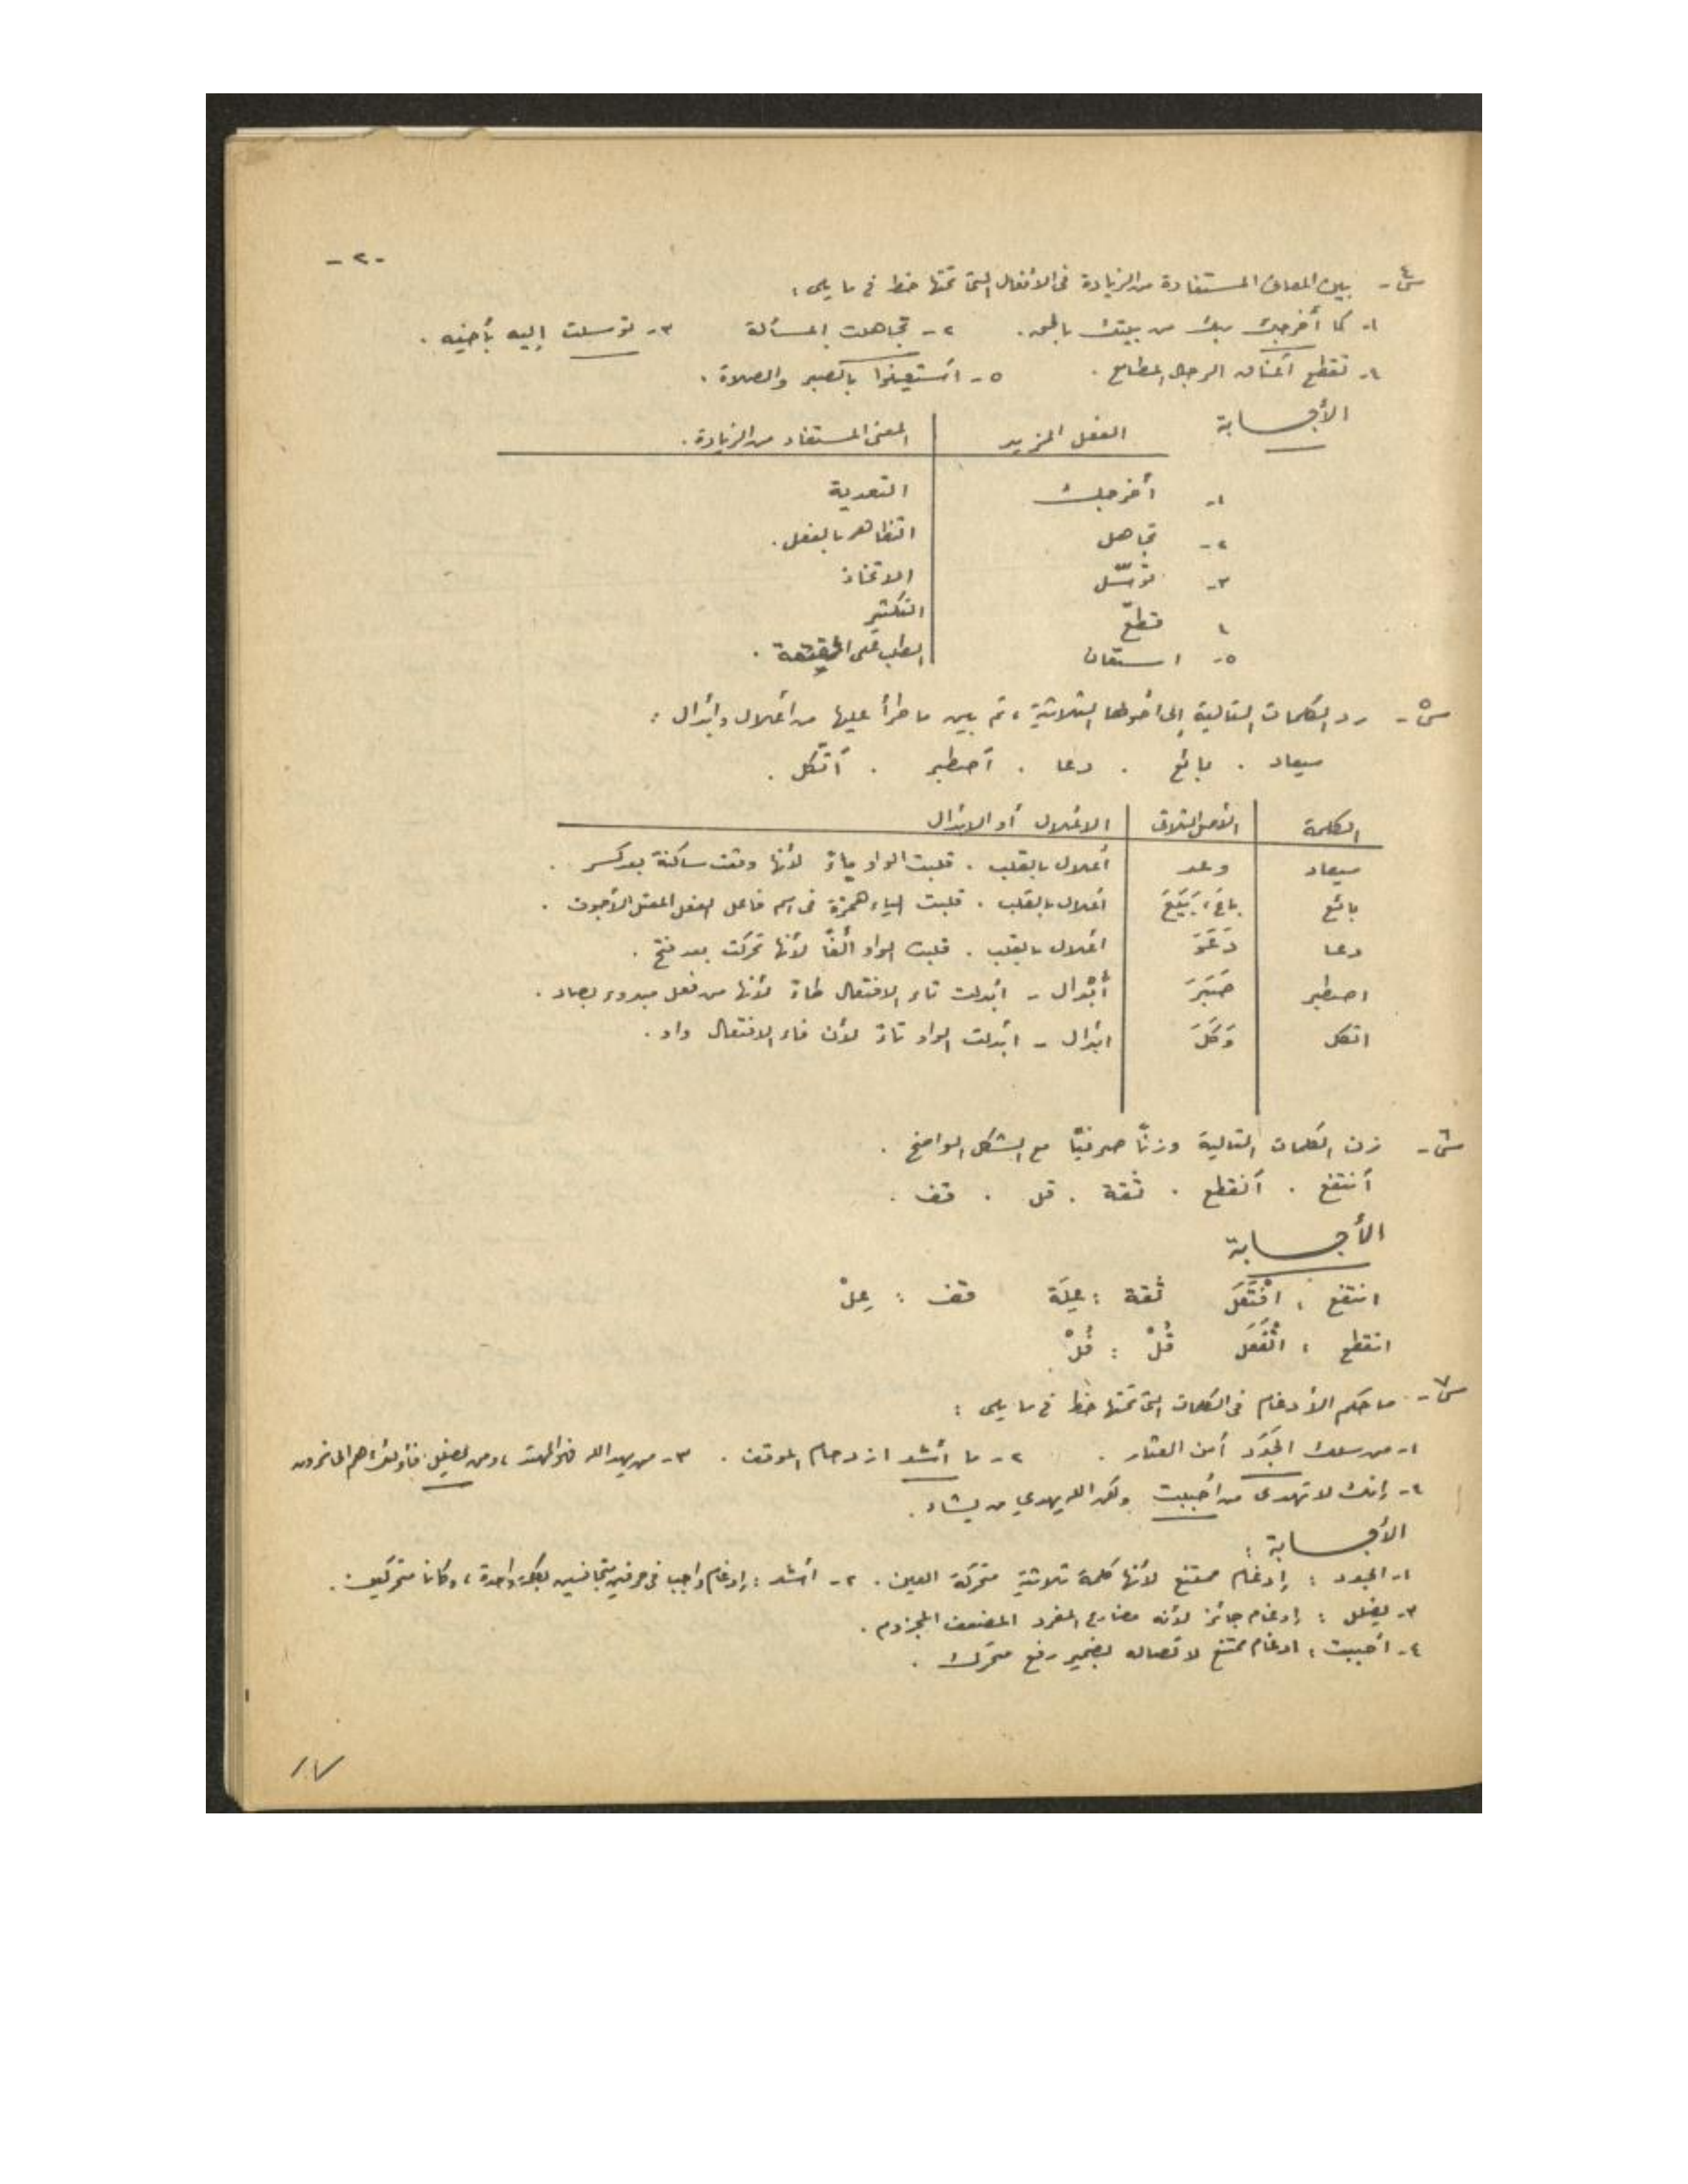 - ٢ -
س٤- بين المعاني المستفادة من الزيادة في الأفعال التي تحتها خط في ما يلي :
١- كما أخرجك ربك من بيتك بالحق . ٢- تجاهلت المسألة ٣- توسلت إليه بأخيه .
٤- تقطع أعناق الرجال المطامع . ٥- استعينوا بالصبر والصلاة .
الأجابة
الفعل المزيد المعنى المستفاد من الزيادة .
١- أخرجك التعدية
٢- تجاهل التظاهر بالفعل .
٣- توسّل الاتخاذ
٤ قطّع التكثير
٥- استعان الطلب على الحقيقة .
س٥- رد الكلمات التالية إلى أصولها الثلاثية ، ثم بين ما طرأ عليها من أعلال وأبدال :
ميعاد . بائع . دعا . أصطبر . أتّكل .
الكلمة الأصل الثلاثي الاعلال أو الابدال
ميعاد وعد أعلال بالقلب . قلبت الواو ياءً لأنها وقعت ساكنة بعد كسر .
بائع باع ، بَيَعَ أعلال بالقلب . قلبت الياء همزة في اسم فاعل الفعل المعتل الأجوف .
دعا دَعَوَ اعلال بالقلب . قلبت الواو ألفاً لأنها تحركت بعد فتح .
اصطبر صَبَرَ أبْدال - ابدلت تاء الافتعال طاءً لأنها من فعل مبدوء بصاد .
اتكل وَكَلَ ابدال - ابدلت الواو تاءً لأن فاء الافتعال واو .
س٦- زن الكلمات التالية وزنًا صرفيًا مع الشكل الواضح .
أنتفع . أنقطع . ثقة . قل . قف .
الأجابة
انتفع : افْتَعَلَ ثقة : عِلَة قف : عِلْ
انقطع : انْفَعَلَ قُلْ : فُلْ
س٧- ما حكم الأدغام في الكلمات التي تحتها خط في ما يلي :
١- من سلك الجَدَد أمن العثار . ٢- ما أشد ازدحام الموقف . ٣- من يهد الله فهو المهتد ، ومن يضلل فأولئك هم الخاسرون
٤- إنك لا تهدى من أحببت ولكن الله يهدي من يشاء .
الأجابة :
١- الجدد : إدغام ممتنع لأنها كلمة ثلاثية متحركة العين . ٢- أشد : إدغام واجب في حرفين متجانسين بكلمة واحدة ، وكانا متحركين .
٣- يضلل : إدغام جائز لأنه مضارع المفرد المضعف المجزوم .
٤- أحببت : ادغام ممتنع لاتصاله بضمير رفع متحرك .